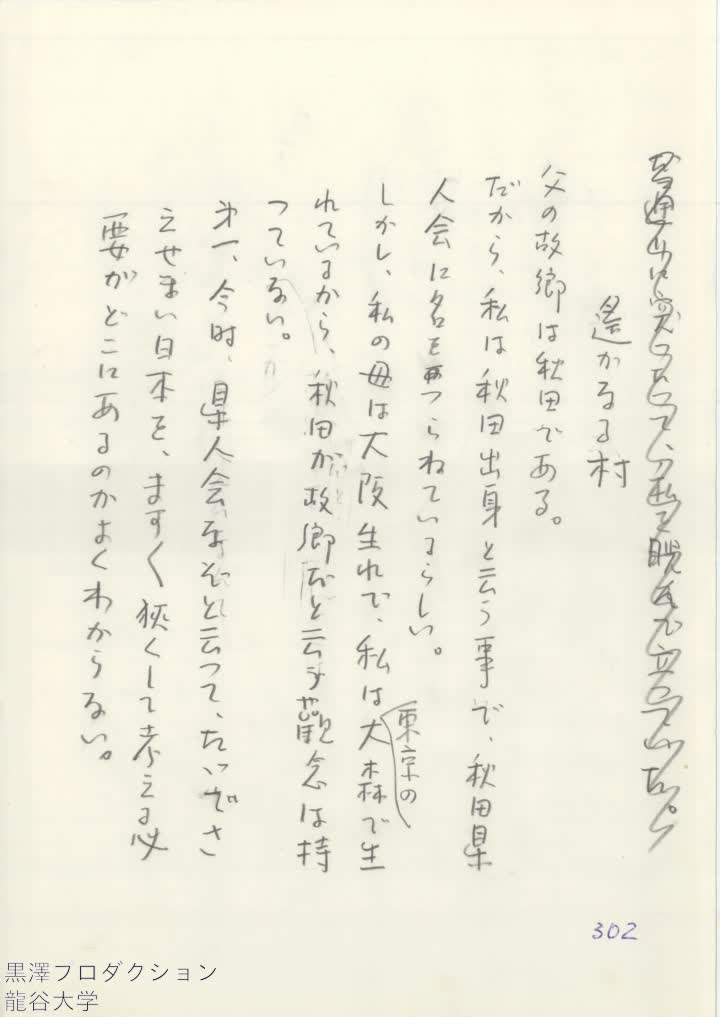 遙かなる村
父の故郷は秋田である。
だから、私は秋田出身と云う事で、秋田県
人会に名をつらねているらしい。
しかし、私の母は大阪生れで、私は東京の大森で生
れているから、秋田が故郷だと云う観念は持
つていない。
第一、今時、県人会などと云つて、たいでさ
えせまい日本を、ますく狭くして考える必
要がどこにあるのかよくわからない。
302
黒澤プロダクション
龍谷大学